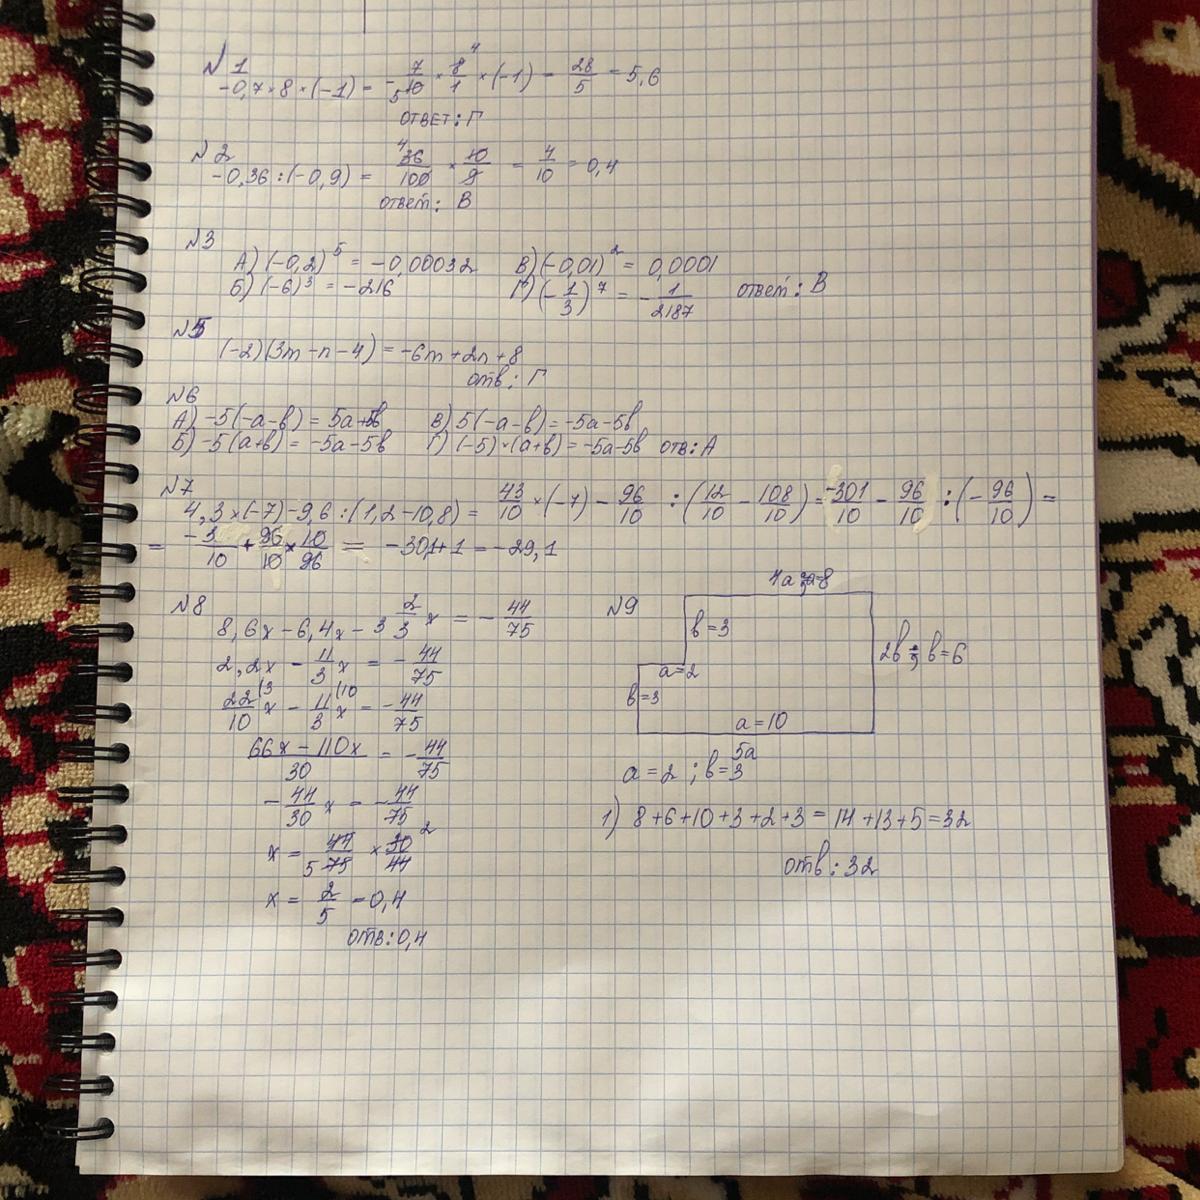 № 1
-0,7 × 8 × (-1) = - 7/10 × 8/1 × (-1) = 28/5 = 5,6
ОТВЕТ: Г
№ 2
-0,36 : (-0,9) = 36/100 × 10/9 = 4/10 = 0,4
ответ: В
№3
А) (-0,2)^5 = -0,00032 В) (-0,01)^2 = 0,0001
Б) (-6)^3 = -216 Г) (-1/3)^7 = - 1/2187 ответ: В
№5
(-2)(3m - n - 4) = -6m + 2n + 8
отв: Г
№6
А) -5(-a-b) = 5a+5b В) 5(-a-b) = -5a-5b
Б) -5(a+b) = -5a-5b Г) (-5)×(a+b) = -5a-5b отв: А
№7
4,3×(-7) - 9,6 : (1,2-10,8) = 43/10 × (-7) - 96/10 : (12/10 - 108/10) = -301/10 - 96/10 : (- 96/10) =
= -3/10 + 96/10 × 10/96 = -30,1+1 = -29,1
№8
8,6x - 6,4x - 3 2/3 x = - 44/75
2,2x - 11/3 x = - 44/75
22/10 (3 x - 11/3 (10 x = - 44/75
66x - 110x/30 = - 44/75
- 44/30 x = - 44/75
x = 44/75 5 × 30/44 2
x = 2/5 = 0,4
отв: 0,4
№9
4a = 8
b = 3
2b b = 6
a = 2
b = 3
a = 10
5a
a = 2 ; b = 3
1) 8+6+10+3+2+3 = 14+13+5 = 32
отв: 32